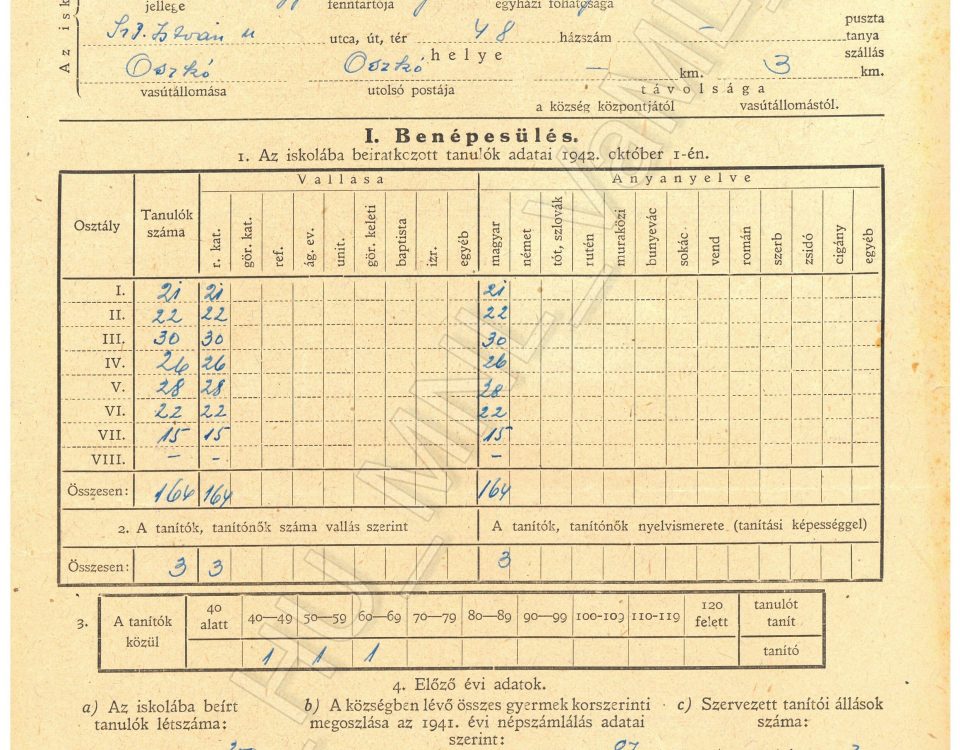 Az isk
jellege fenntartója egyházi főhatósága
Szt. István u utca, út, tér 48 házszám – puszta
tanya
szállás
Oszkó Oszkó helye – km. 3 km.
vasútállomása utolsó postája távolsága
a község központjától vasútállomástól.
I. Benépesülés.
1. Az iskolába beiratkozott tanulók adatai 1942. október 1-én.
Osztály Tanulók száma Vallása Anyanyelve
r. kat. gör. kat. ref. ág. ev. unit. gör. keleti baptista izr. egyéb magyar német tót, szlovák rutén muraközi bunyevác sokác vend román szerb zsidó cigány egyéb
I. 21 21 21
II. 22 22 22
III. 30 30 30
IV. 26 26 26
V. 28 28 28
VI. 22 22 22
VII. 15 15 15
VIII. – – –
Összesen: 164 164 164
2. A tanítók, tanítónők száma vallás szerint A tanítók, tanítónők nyelvismerete (tanítási képességgel)
Összesen: 3 3 3
3. A tanítók közül 40 alatt 40—49 50—59 60—69 70—79 80—89 90—99 100-109 110-119 120 felett tanulót tanít
1 1 1 tanító
4. Előző évi adatok.
a) Az iskolába beírt b) A községben lévő összes gyermek korszerinti c) Szervezett tanítói állások
tanulók létszáma: megoszlása az 1941. évi népszámlálás adatai száma:
szerint:
HU_MNL_VaML